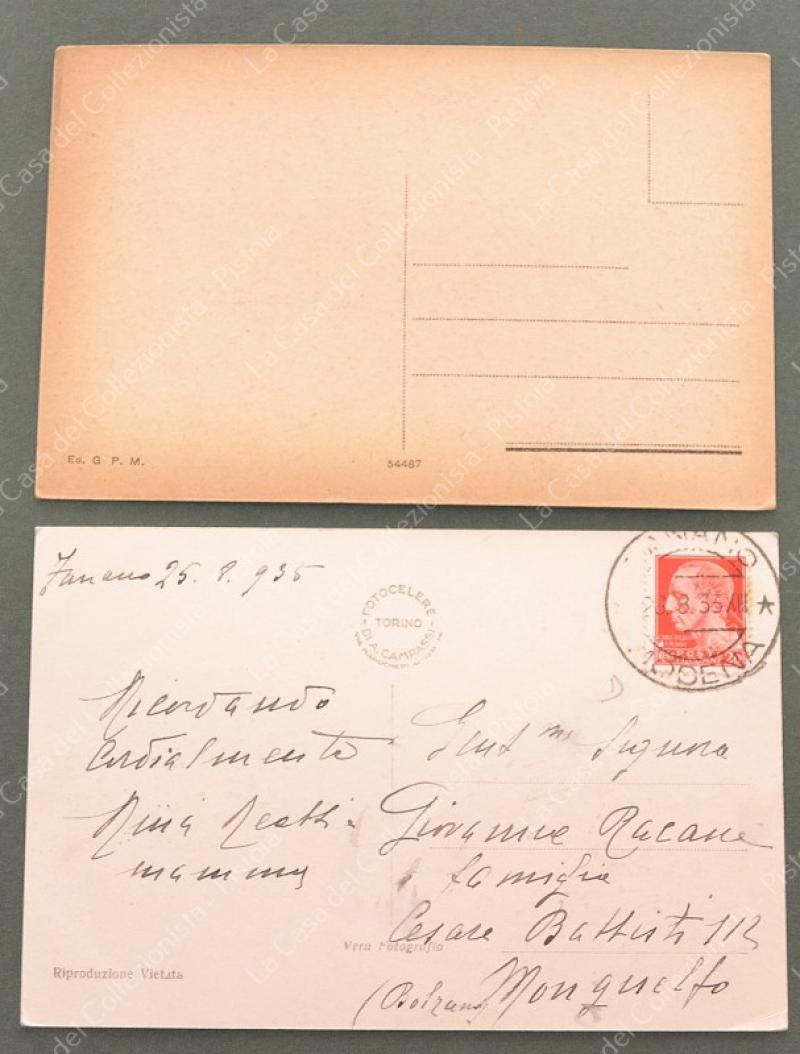 Ed. G. P. M.
54487
Fanano 25.8.935
FOTOCELERE
TORINO
DI A. CAMPASSI
FANANO
MODENA
Ricordando
cordialmente
Nina
mamma
Gent.ma Signora
Giovanna Racane
e famiglia
Cesare Battisti 112
Monguelfo
(Bolzano)
Vera Fotografia
Riproduzione Vietata
La Casa del Collezionista - Pistoia